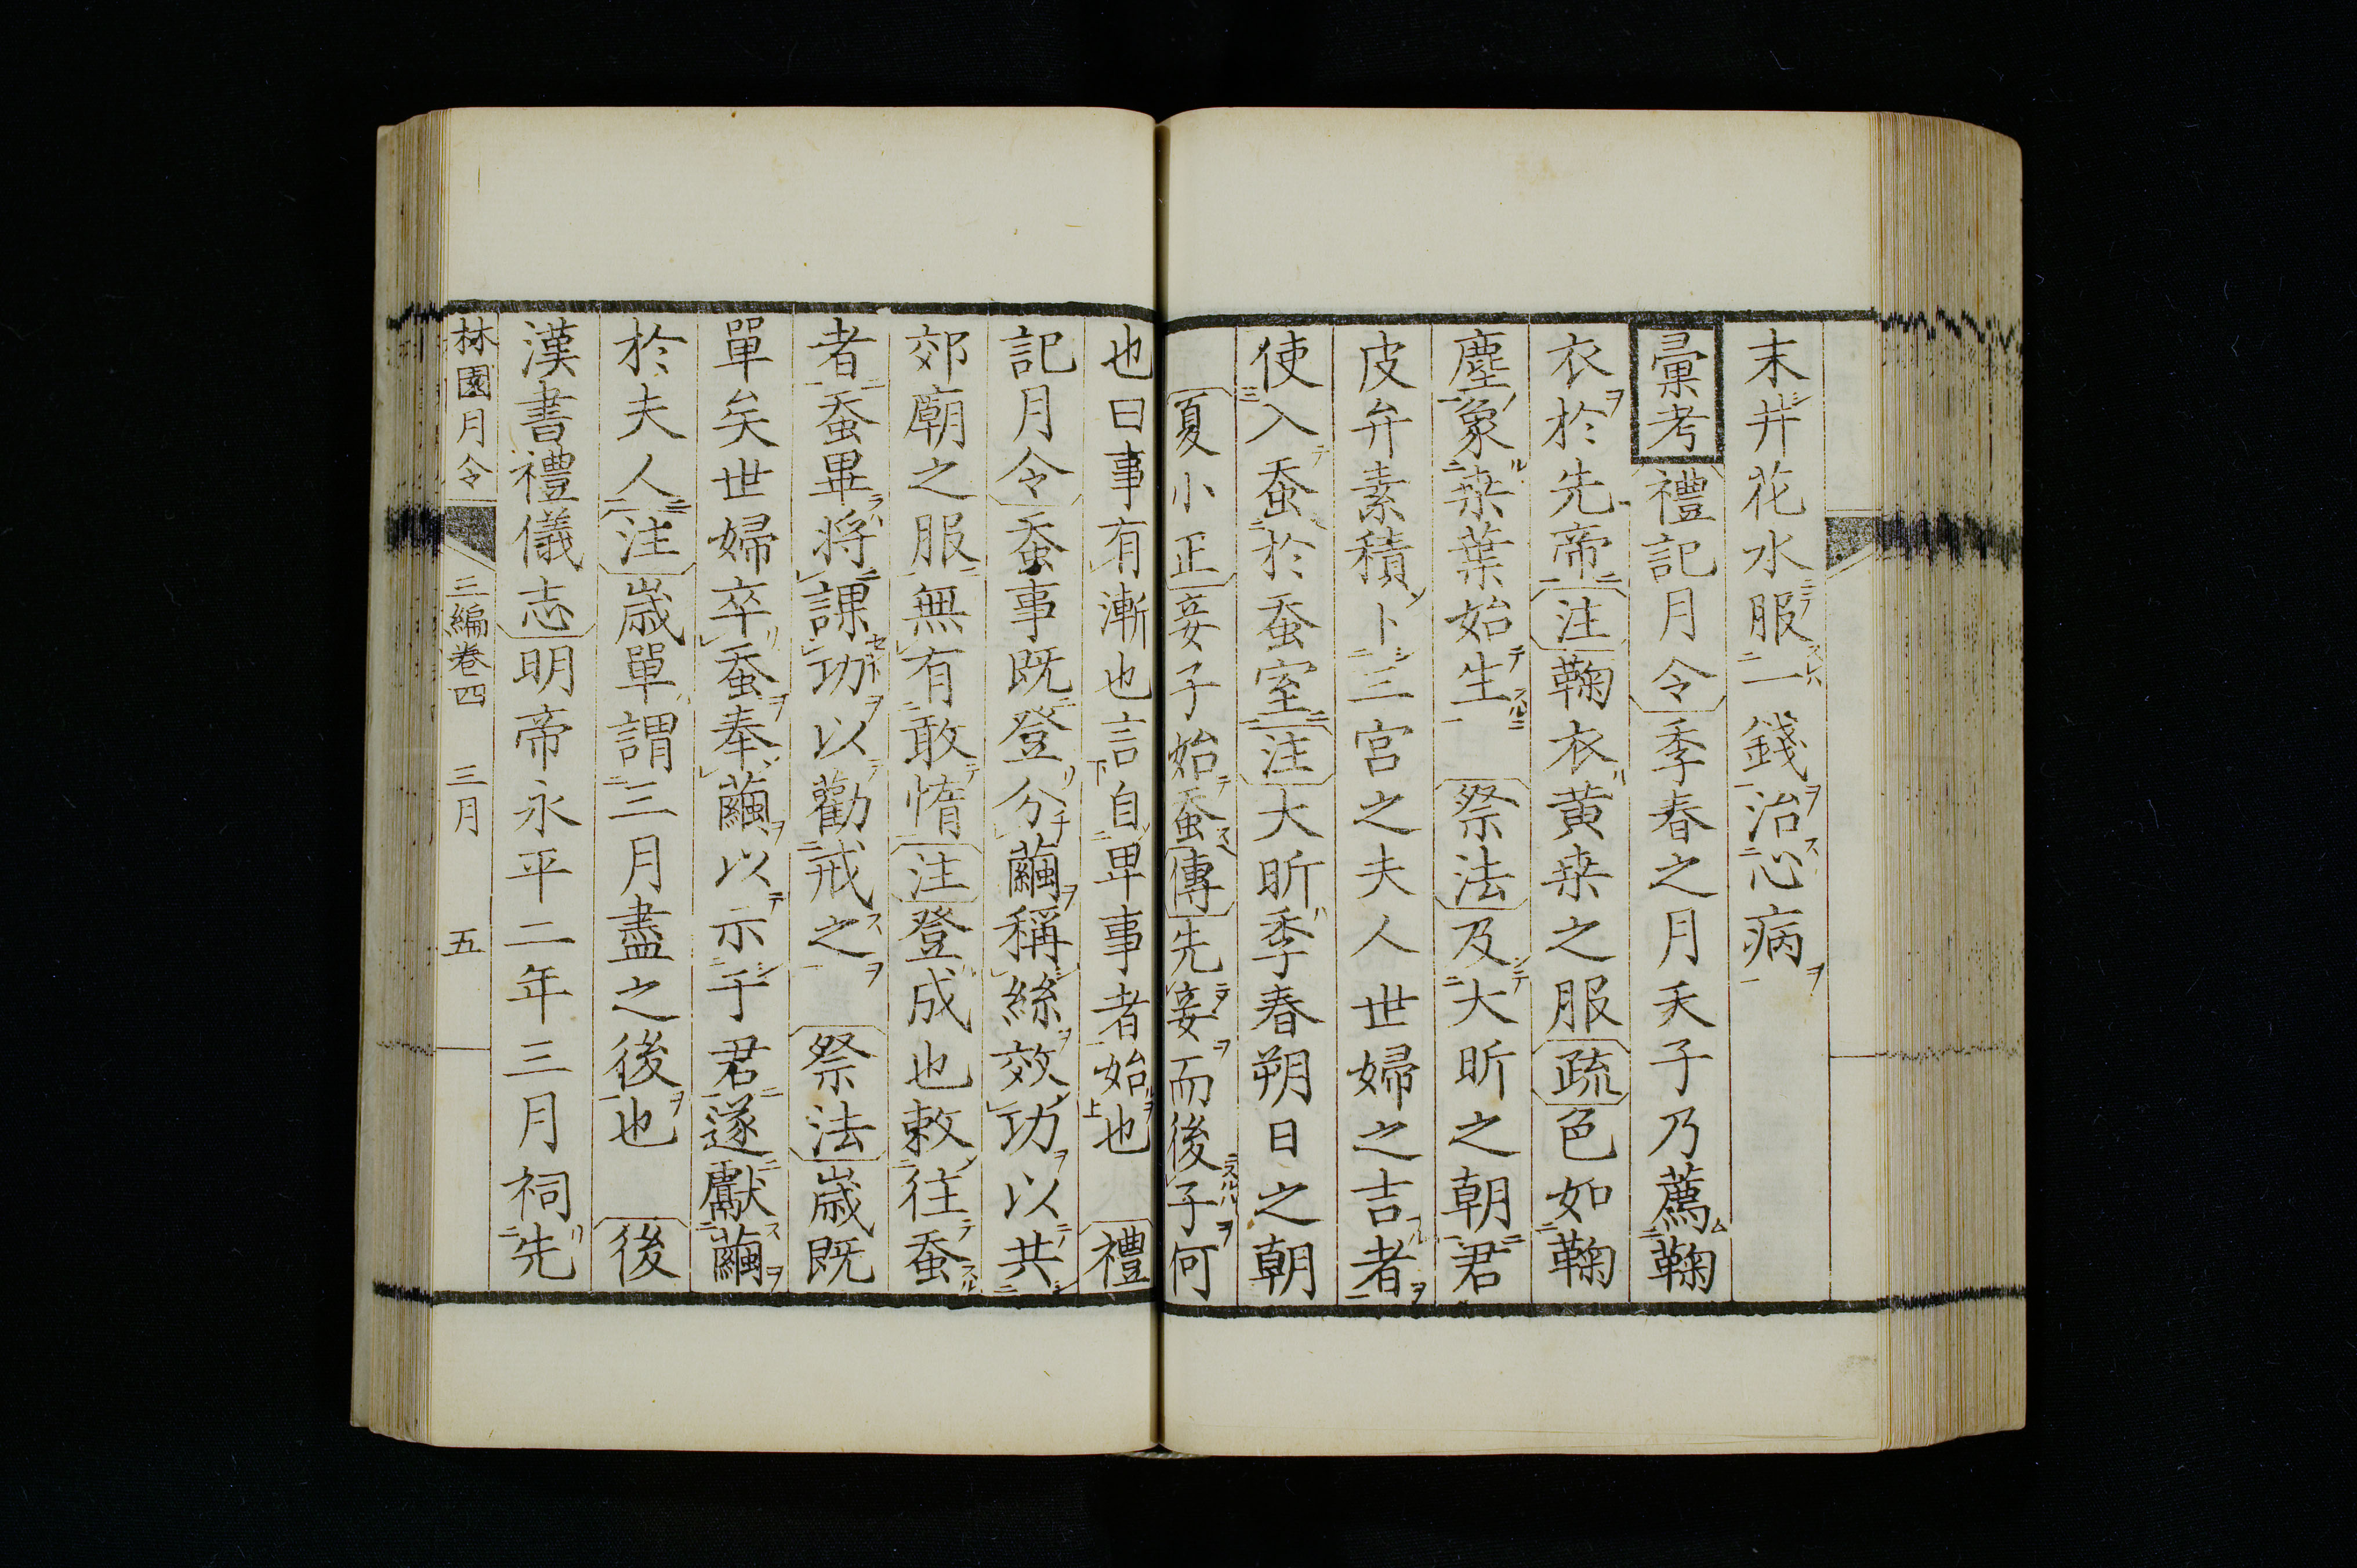 末井花水服二錢治心病
彙考禮記月令季春之月天子乃薦鞠
衣於先帝注鞠衣黄桒之服疏色如鞠
塵象桒葉始生 祭法及大昕之朝君
皮弁素積卜三宮之夫人世婦之吉者
使入蚕於蚕室注大昕季春朔日之朝
夏小正妾子始蚕傳先妾而後子何
也曰事有漸也言自卑事者始也 禮
記月令蚕事既登分繭稱絲效功以共
郊廟之服無有敢惰注登成也敕往蚕
者蚕畢將課功以勸戒之 祭法歲既
單矣世婦卒蚕奉繭以示于君遂獻繭
於夫人注歲單謂三月盡之後也 後
漢書禮儀志明帝永平二年三月祠先
林園月令 三編卷四 三月 五